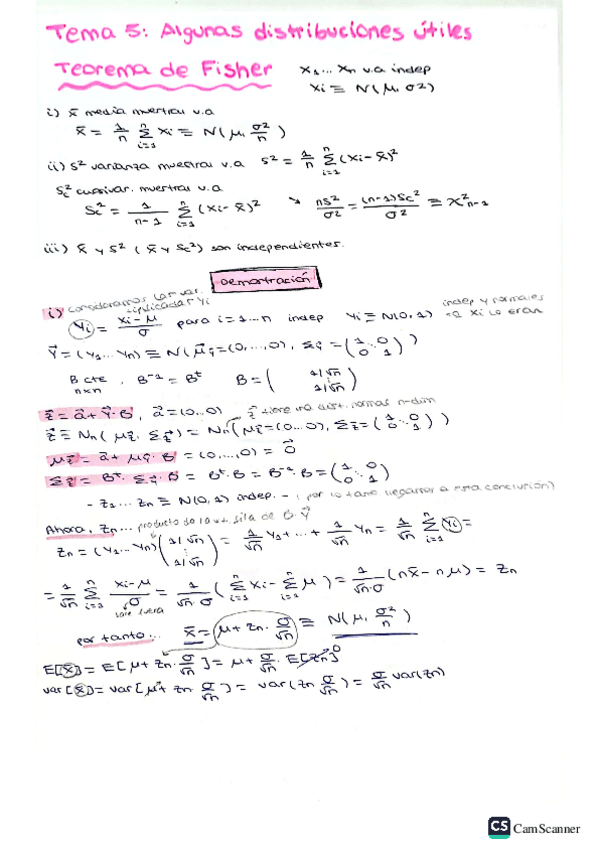 Tema 5: Algunas distribuciones útiles
Teorema de Fisher   x₁... xₙ v.a indep
xi ≡ N(μ, σ2)
i) x̄ media muestral v.a
x̄ = 1/n Σᵢ₌₁ⁿ xi ≡ N(μ, σ²/n)
ii) S² varianza muestral v.a   S² = 1/n Σᵢ₌₁ⁿ (xi - x̄)²
Sc² cuasivar. muestral v.a
Sc² = 1/(n-1) Σᵢ₌₁ⁿ (xi - x̄)²   → nS²/σ² = (n-1)Sc²/σ² ≡ X²ₙ₋₁
iii) x̄ y S² (x̄ y Sc²) son independientes.
Demostración
i) consideramos las var.
Yi = (xi - μ)/σ para i = 1...n indep   Yi ≡ N(0,1)   indep y normales xi lo eran
Y⃗ = (Y₁... Yn) ≡ N(μ⃗ȳ = (0,...,0), Σȳ = (1 0 0 1))
B cte n×n, B⁻¹ = Bᵗ   B = (1/√n 1/√n)
z⃗ = a⃗ + Y⃗·B, a⃗ = (0...0)   z⃗ tiene una dist. normal n-dim
z⃗ ≡ Nn(μz⃗, Σz⃗) = Nn(μz⃗ = (0...0), Σz⃗ = (1 0 0 1))
μz⃗ = a⃗ + μȳ·B = (0,...,0) = 0⃗
Σz⃗ = Bᵗ·Σȳ·B = Bᵗ·B = B⁻¹·B = (1 0 0 1)
- z₁... zn ≡ N(0,1) indep. - (por lo tanto llegamos a esta conclusión)
Ahora, zn... producto de la fila de B·Y⃗
zn = (Y₁... Yn)(1/√n ⋮ 1/√n) = 1/√n Y₁ + ... + 1/√n Yn = 1/√n Σᵢ₌₁ⁿ Yi =
= 1/√n Σᵢ₌₁ⁿ (xi - μ)/σ = 1/(√n·σ) (Σᵢ₌₁ⁿ xi - Σᵢ₌₁ⁿ μ) = 1/(√n·σ) (nx̄ - nμ) = zn
sale fuera
por tanto... x̄ = μ + zn·σ/√n ≡ N(μ, σ²/n)
E[x̄] = E[μ + zn·σ/√n] = μ + σ/√n·E[zn]⁰
var[x̄] = var[μ + zn σ/√n] = var(zn σ/√n) = σ/√n var(zn)
CS CamScanner